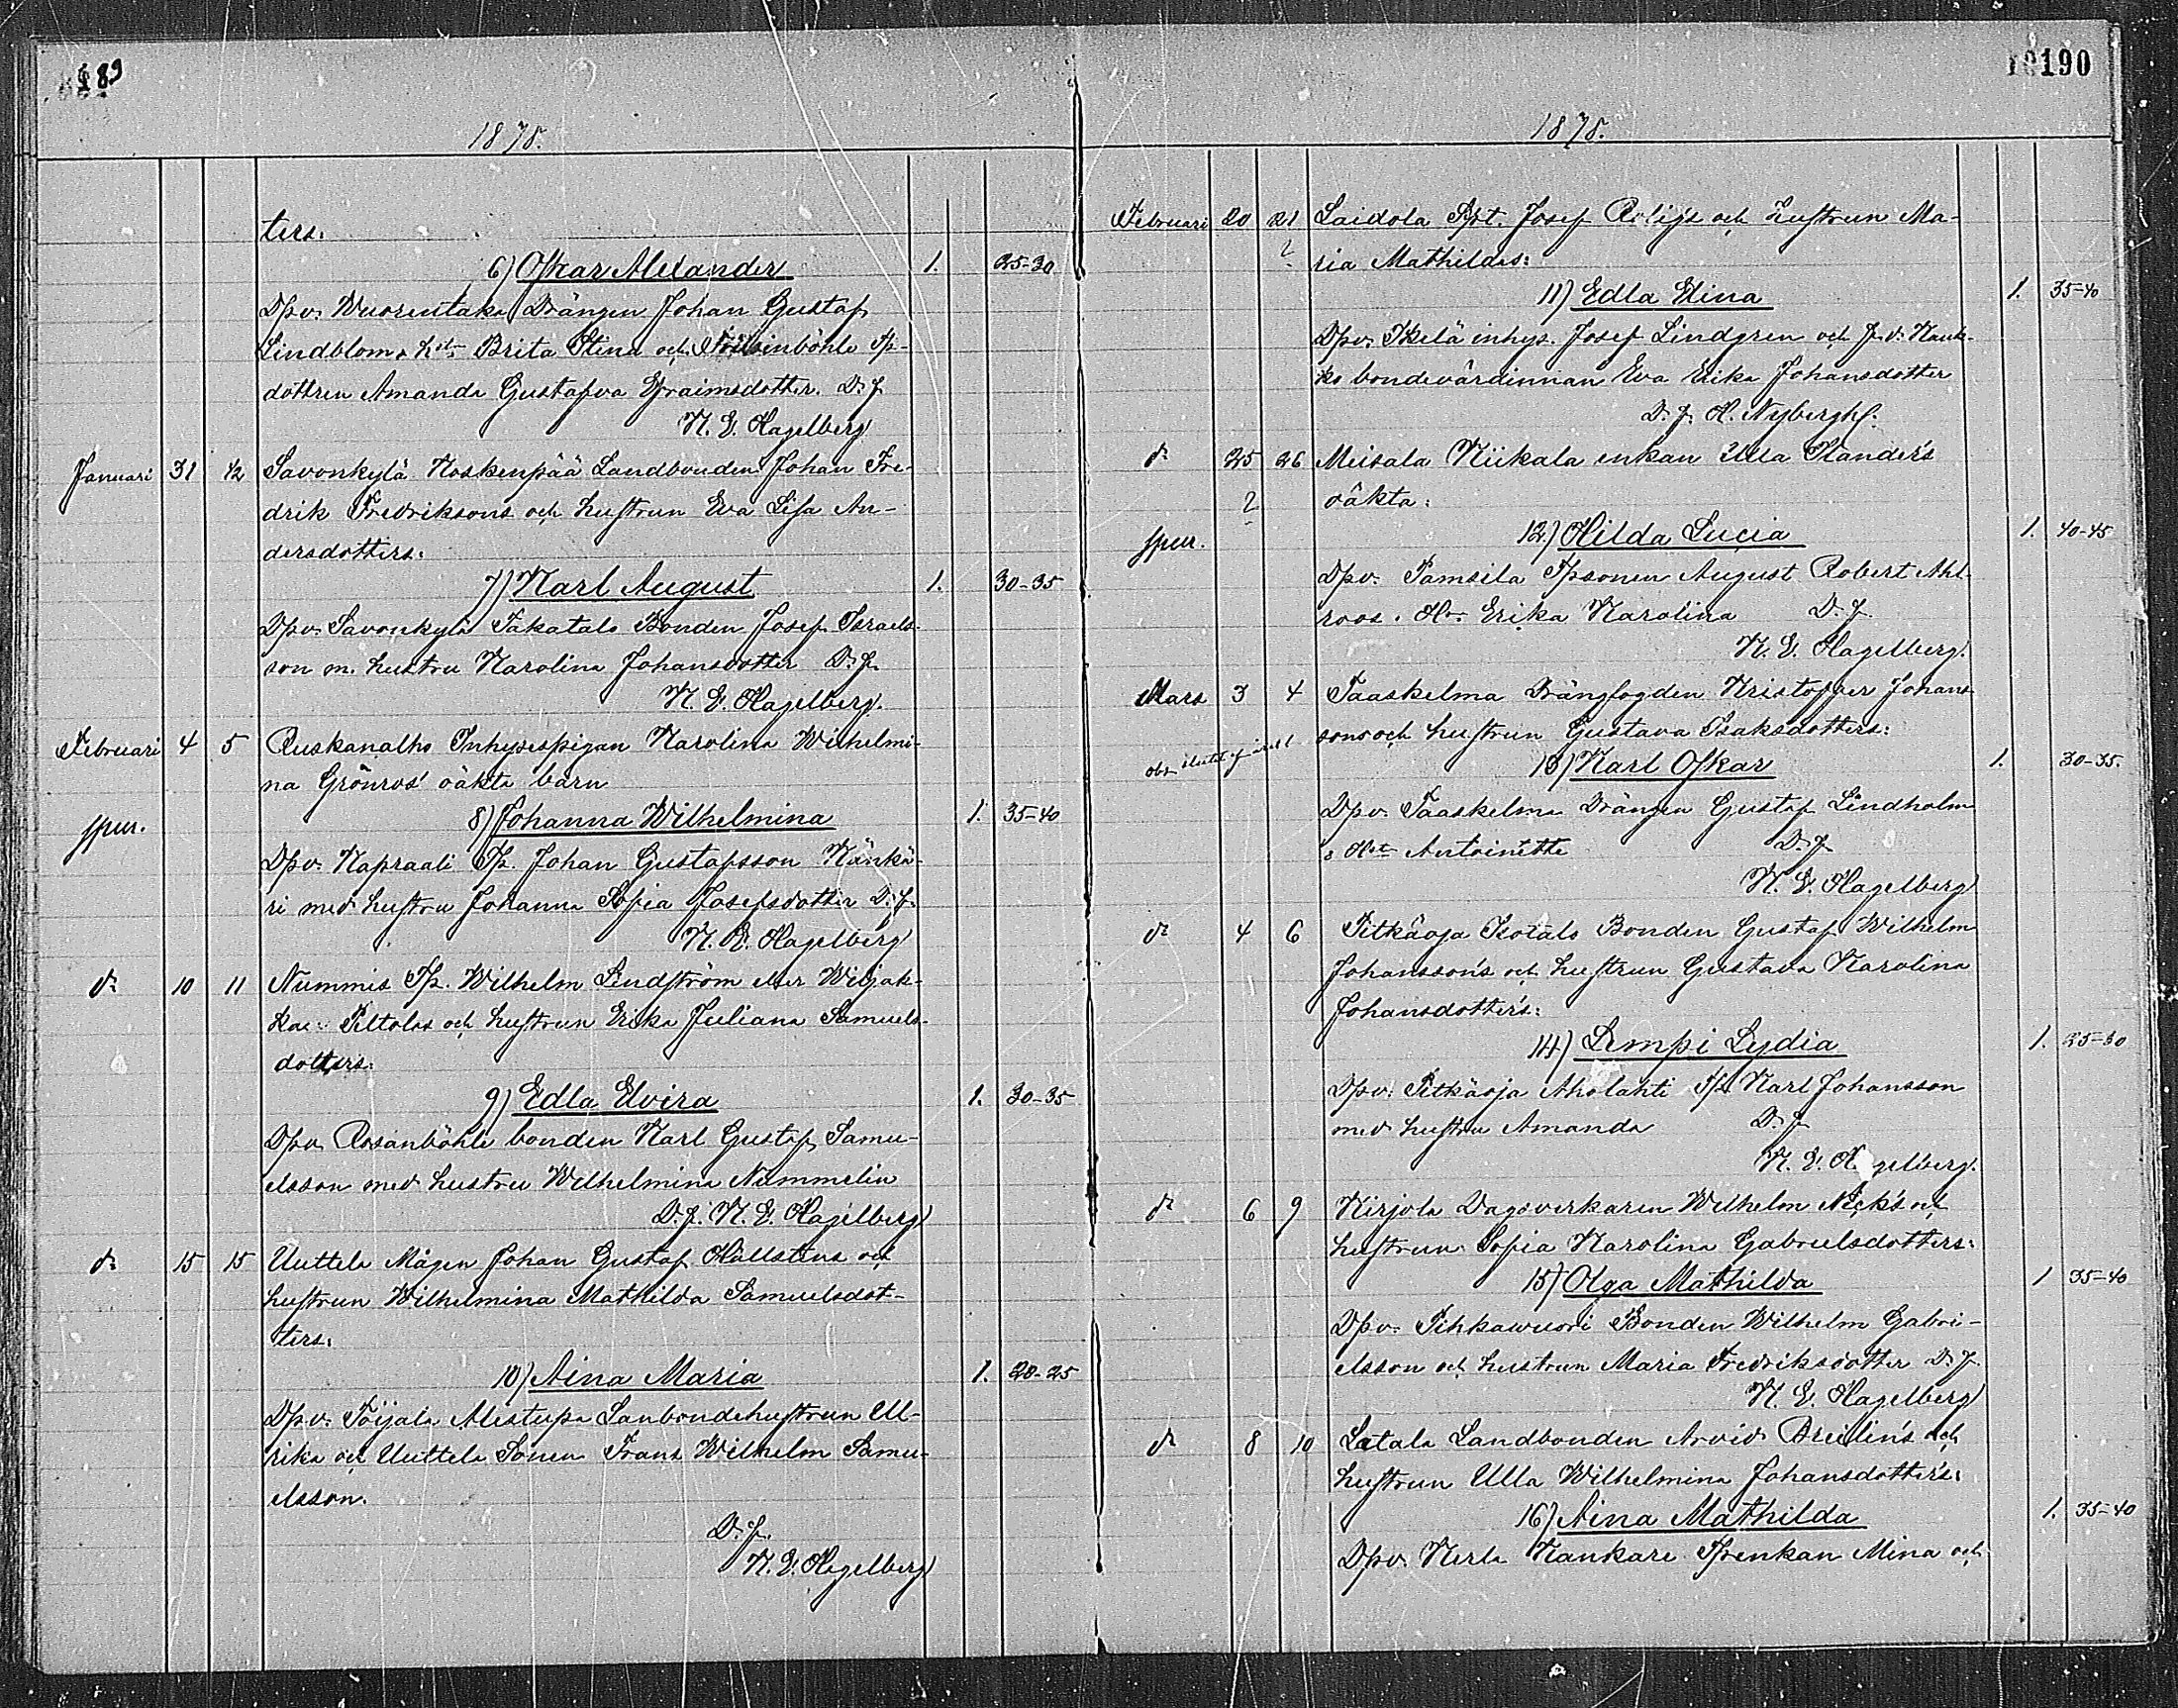 189
1878.
ters:
6) Oskar Alexander 1. 25-30
Dpv. Wuorentaka Drängen Johan Gustaf
Lindblom o. h:n Brita Stina och Tp-
dottren Amanda Gustafva Efraimsdotter. D. f.
K. E. Hagelberg
Januari 31 1/2 Savonkylä Koskenpää Landbonden Johan Fre-
drik Fredriksons och hustrun Eva Lisa An-
dersdotters:
7) Karl August 1. 30-35
Dpv. Savonkylä Takatalo Bonden Josef Israels-
son m. hustru Karolina Johansdotter D. f.
K. E. Hagelberg.
Februari 4 5 Ruskanalho Inhysespigan Karolina Wilhelmi-
na Grönros' oäkta barn
spur. 8) Johanna Wilhelmina 1. 35-40
Dpv. Kapraali Tp. Johan Gustafsson Känkä-
ri med hustru Johanna Sofia Josefsdotter D. f.
K. E. Hagelberg
d:o 10 11 Nummis Tp. Wilhelm Lindström eller Wiljak-
kas Peltolas och hustrun Erika Juliana Samuels-
dotters:
9) Edla Elvira 1. 30-35
Dpv. Rosanböhle bonden Karl Gustaf Samu-
elsson med hustru Wilhelmina Nummelin
D. f. K. E. Hagelberg
d:o 15 15 Uuttela Mågen Johan Gustaf Hällstens och
hustrun Wilhelmina Mathilda Samuelsdot-
ters:
10) Aina Maria 1. 20-25
Dpv. Töijala Alestupa Lanbondehustrun Ul-
rika och Uuttela Sonen Frans Wilhelm Samu-
elsson.
D. f.
K. E. Hagelberg
190
1878.
Februari 20 21 Laidola Josef och hustrun Ma-
? ria Mathildas:
11) Edla Elina 1. 35-40
Dpv. Ikelä inhys. Josef Lindgren och Kauk-
ko bondevärdinnan Eva Erika Johansdotter
D. f. H. Nybergh.
d:o 25 26 Meisala Niikala enkan Ulla Flander's
? oäkta:
spur. 12) Hilda Lucia 1. 40-45
Dpv. Pamsila Tpsonen August Robert Ahl-
roos o. H:n Erika Karolina D. f.
K. E. Hagelberg.
Mars 3 4 Taaskelma Drängfogden Kristoffer Johans-
sons och hustrun Gustava Isaksdotters:
13) Karl Oskar 1. 30-35.
Dpv. Taaskelma Drängen Gustaf Lindholm
o H:n Antoinette D. f.
K. E. Hagelberg
d:o 4 6 Pitkäoja Isotalo Bonden Gustaf Wilhelm
Johansson's och hustrun Gustava Karolina
Johansdotter's:
14) Lempi Lydia 1. 25-30
Dpv. Pitkäoja Aholahti Tp. Karl Johansson
med hustru Amanda D. f.
K. E. Hagelberg.
d:o 6 9 Kirjola Dagsverkaren Wilhelm Neck's och
hustrun Sofia Karolina Gabrielsdotters:
15) Olga Mathilda 1 35-40
Dpv. Pihkawuori Bonden Wilhelm Gabri-
elsson och hustrun Maria Fredriksdotter D. f.
K. E. Hagelberg
d:o 8 10 Latala Landbonden Arvid Areilin's och
hustrun Ulla Wilhelmina Johansdotter's:
16) Aina Mathilda 1. 35-40
Dpv. Kerla Kankare Tpenkan Mina och